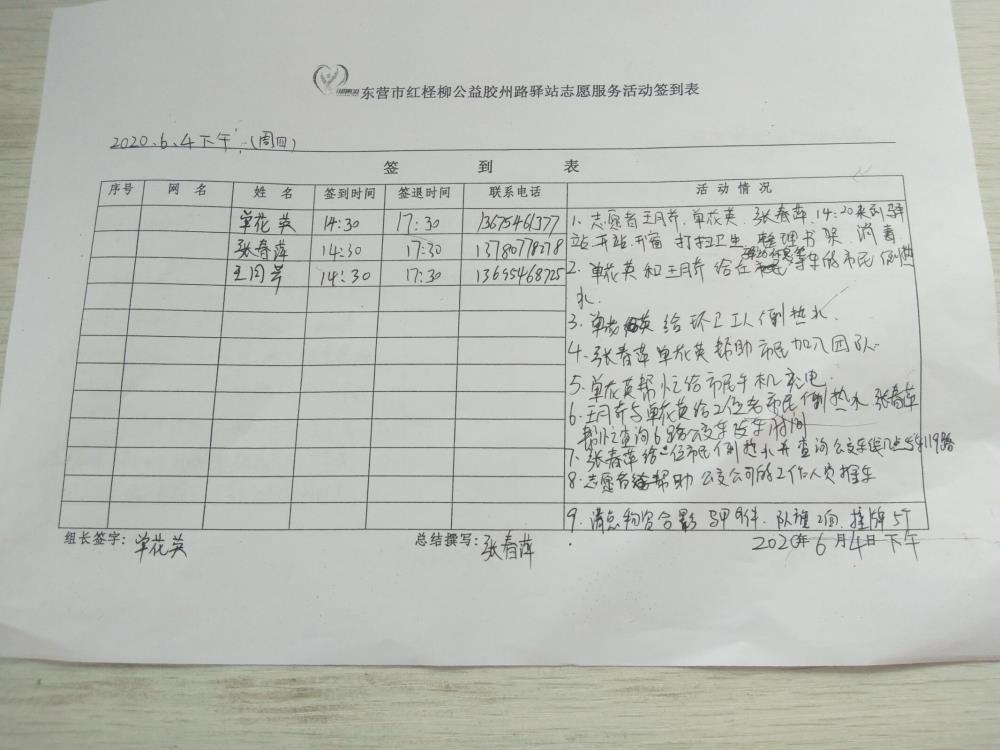 东营市红柽柳公益胶州路驿站志愿服务活动签到表
2020.6.4下午(周四)
签 到 表
序号 网 名 姓 名 签到时间 签退时间 联系电话 活 动 情 况
单花英 14:30 17:30 13675461377
张春萍 14:30 17:30 13780778278
王月芹 14:30 17:30 13655468725
1、志愿者王月芹、单花英、张春萍、14:20来到驿
站、开站、开窗 打扫卫生 整理书架、消毒
2、单花英和王月芹给在 等车的市民倒热
水、
3、单花英给环卫工人倒热水、
4、张春萍单花英帮助市民加入团队、
5、单花英帮忙给市民手机充电、
6、王月芹与单花英给2位老市民倒热水、张春萍
帮忙查询6路公交车发车时间
7、张春萍给一位市民倒热水并查询公交车 119路
8、志愿者 帮助公交公司的工作人员推车
9、清点物资合影 马甲9件、队旗2面、挂牌5个
组长签字: 单花英 总结撰写: 张春萍 2020年6月4日下午